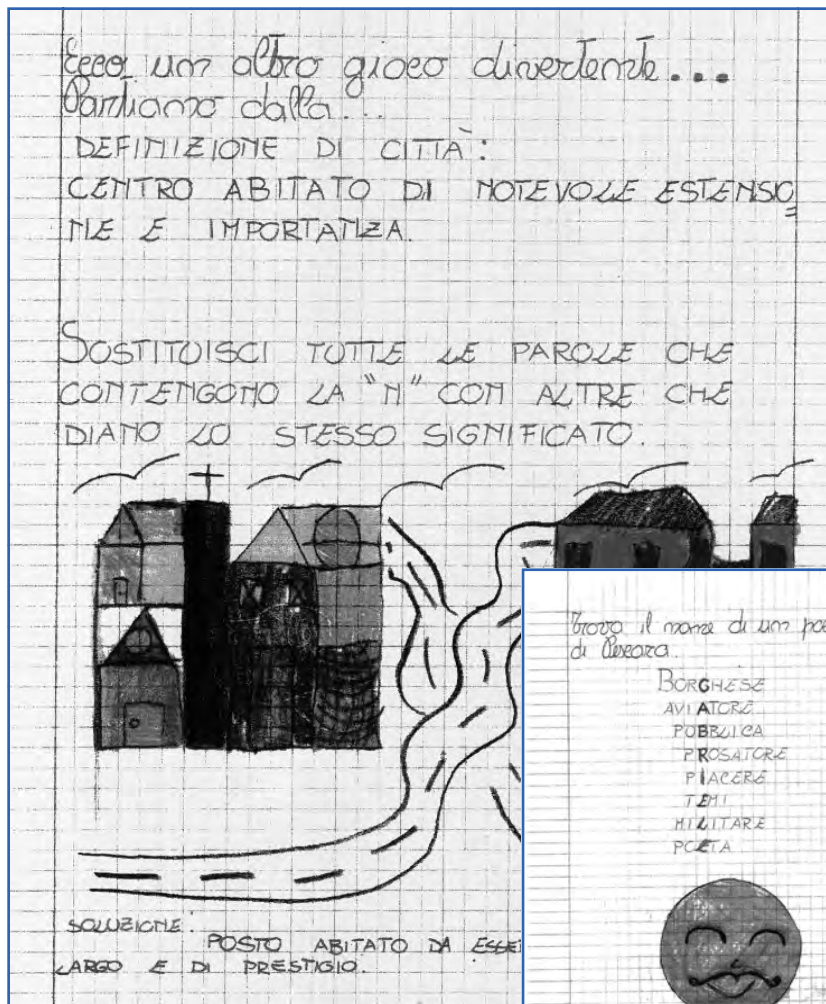 Ecco un altro gioco divertente...
Partiamo dalla...
DEFINIZIONE DI CITTÀ:
CENTRO ABITATO DI NOTEVOLE ESTENSIO
NE E IMPORTANZA.
SOSTITUISCI TUTTE LE PAROLE CHE
CONTENGONO LA "N" CON ALTRE CHE
DIANO LO STESSO SIGNIFICATO.
SOLUZIONE.
POSTO ABITATO DA
LARGO E DI PRESTIGIO.
Trova il nome di un
di Pescara.
BORGHESE
AVIATORE
PUBBLICA
PROSATORE
PIACERE
TEMI
MILITARE
POETA